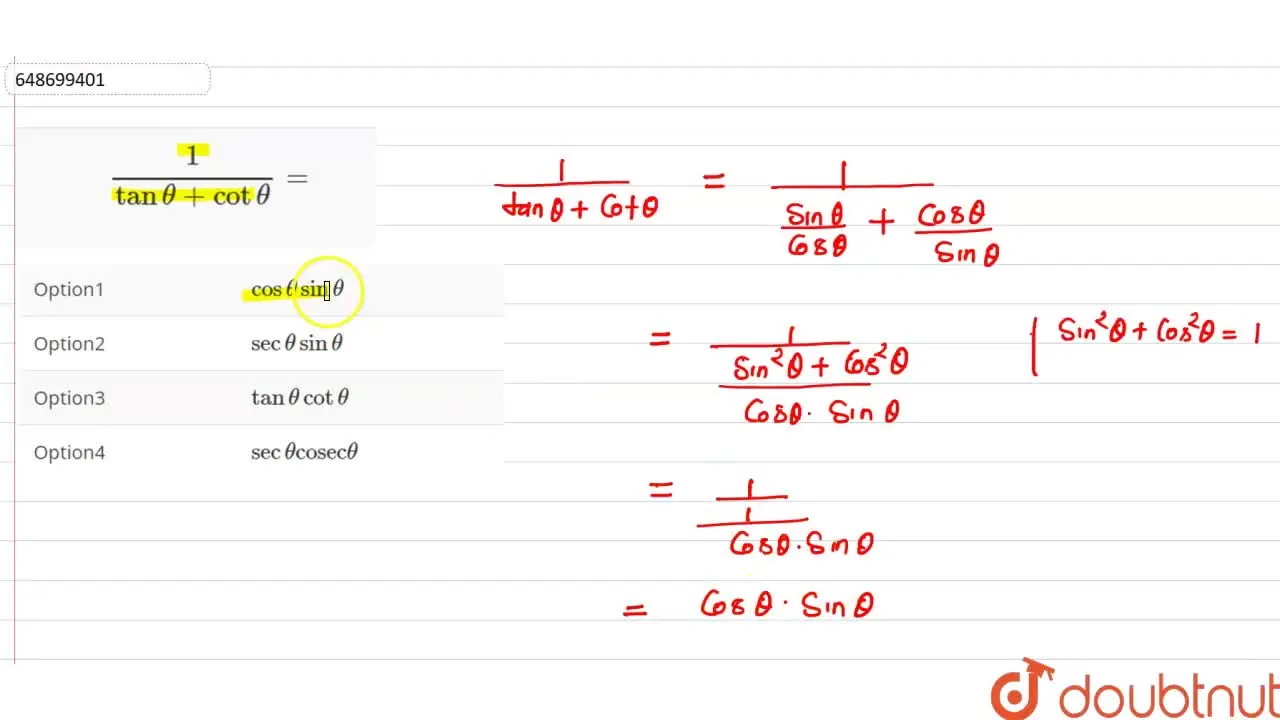 648699401
1
tan θ + cot θ =
Option1 cos θ sin θ
Option2 sec θ sin θ
Option3 tan θ cot θ
Option4 sec θcosecθ
1 / tan θ + Cot θ = 1 / Sin θ / Cos θ + Cos θ / Sin θ
= 1 / Sin²θ + Cos²θ / Cos θ · Sin θ | Sin²θ + Cos²θ = 1
= 1 / 1 / Cos θ · Sin θ
= Cos θ · Sin θ
doubtnut